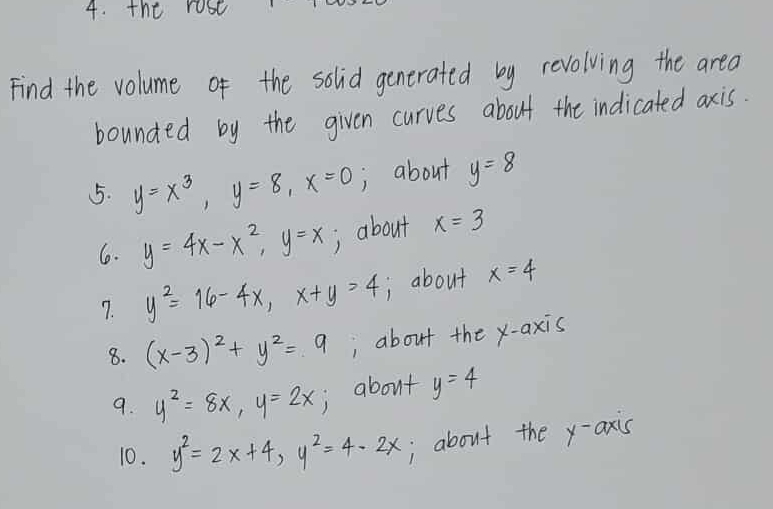 4. the rose
Find the volume of the solid generated by revolving the area
bounded by the given curves about the indicated axis.
5. y = x³, y = 8, x = 0; about y = 8
6. y = 4x - x², y = x; about x = 3
7. y² = 16 - 4x, x + y = 4; about x = 4
8. (x-3)² + y² = 9; about the y-axis
9. y² = 8x, y = 2x; about y = 4
10. y² = 2x + 4, y² = 4 - 2x; about the y-axis